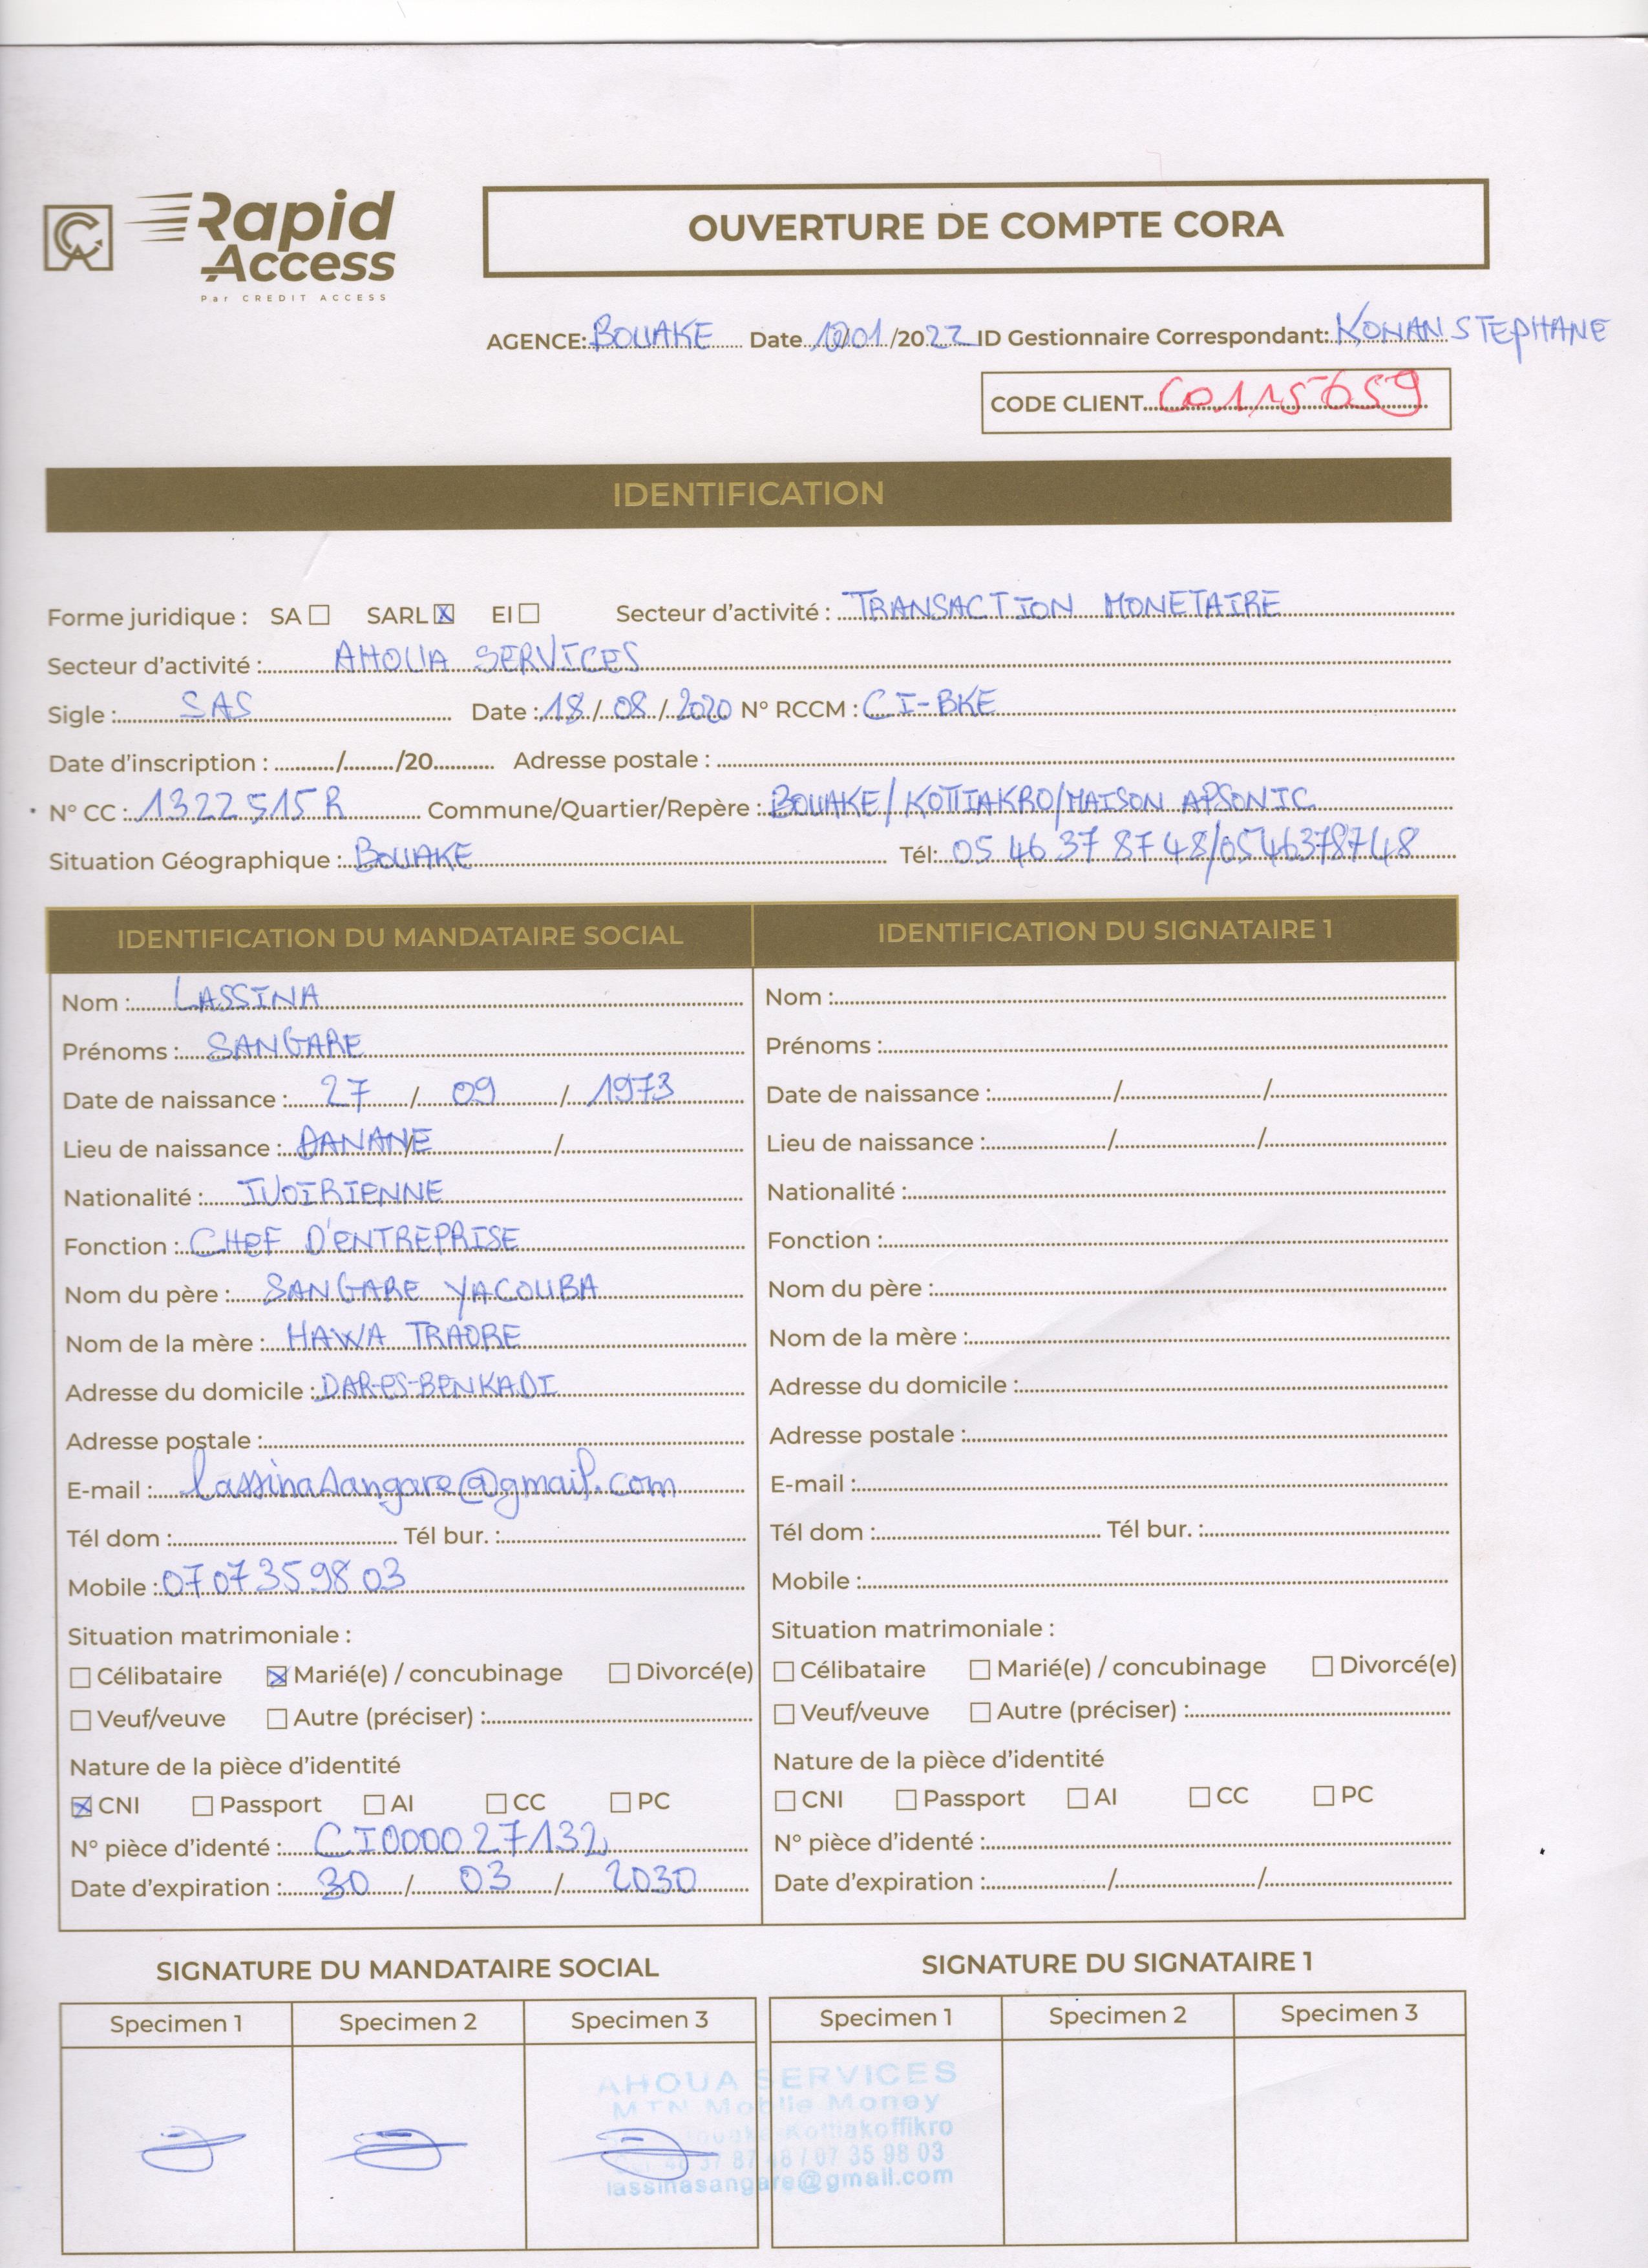 Rapid
Access
Par CREDIT ACCESS
OUVERTURE DE COMPTE CORA
AGENCE: BOUAKE Date 10/01/2022 ID Gestionnaire Correspondant: KONAN STEPHANE
CODE CLIENT C0115659
IDENTIFICATION
Forme juridique : SA ☐ SARL ☒ EI ☐ Secteur d'activité : TRANSACTION MONETAIRE
Secteur d'activité : AHOUA SERVICES
Sigle : SAS Date : 18 / 08 / 2020 N° RCCM : CI-BKE
Date d'inscription : ........../........./20........... Adresse postale :
N° CC : 1322515R Commune/Quartier/Repère : BOUAKE/KOTTIAKRO/MAISON APSONIC
Situation Géographique : BOUAKE Tél: 05 46 37 87 48/0546378748
IDENTIFICATION DU MANDATAIRE SOCIAL
Nom : LASSINA
Prénoms : SANGARE
Date de naissance : 27 / 09 / 1973
Lieu de naissance : DANANE / /
Nationalité : IVOIRIENNE
Fonction : CHEF D'ENTREPRISE
Nom du père : SANGARE YACOUBA
Nom de la mère : HAWA TRAORE
Adresse du domicile : DAR-ES-BENKADI
Adresse postale :
E-mail : lassinasangare@gmail.com
Tél dom : Tél bur. :
Mobile : 07 07 35 98 03
Situation matrimoniale :
☐ Célibataire ☒ Marié(e) / concubinage ☐ Divorcé(e)
☐ Veuf/veuve ☐ Autre (préciser) :
Nature de la pièce d'identité
☒ CNI ☐ Passport ☐ AI ☐ CC ☐ PC
N° pièce d'identé : CI000027132
Date d'expiration : 30 / 03 / 2030
IDENTIFICATION DU SIGNATAIRE 1
Nom :
Prénoms :
Date de naissance : / /
Lieu de naissance : / /
Nationalité :
Fonction :
Nom du père :
Nom de la mère :
Adresse du domicile :
Adresse postale :
E-mail :
Tél dom : Tél bur. :
Mobile :
Situation matrimoniale :
☐ Célibataire ☐ Marié(e) / concubinage ☐ Divorcé(e)
☐ Veuf/veuve ☐ Autre (préciser) :
Nature de la pièce d'identité
☐ CNI ☐ Passport ☐ AI ☐ CC ☐ PC
N° pièce d'identé :
Date d'expiration : / /
SIGNATURE DU MANDATAIRE SOCIAL
Specimen 1 Specimen 2 Specimen 3
SIGNATURE DU SIGNATAIRE 1
Specimen 1 Specimen 2 Specimen 3
AHOUA SERVICES
MTN Mobile Money
Kottiakoffikro
37 87 48 / 07 35 98 03
lassinasangare@gmail.com